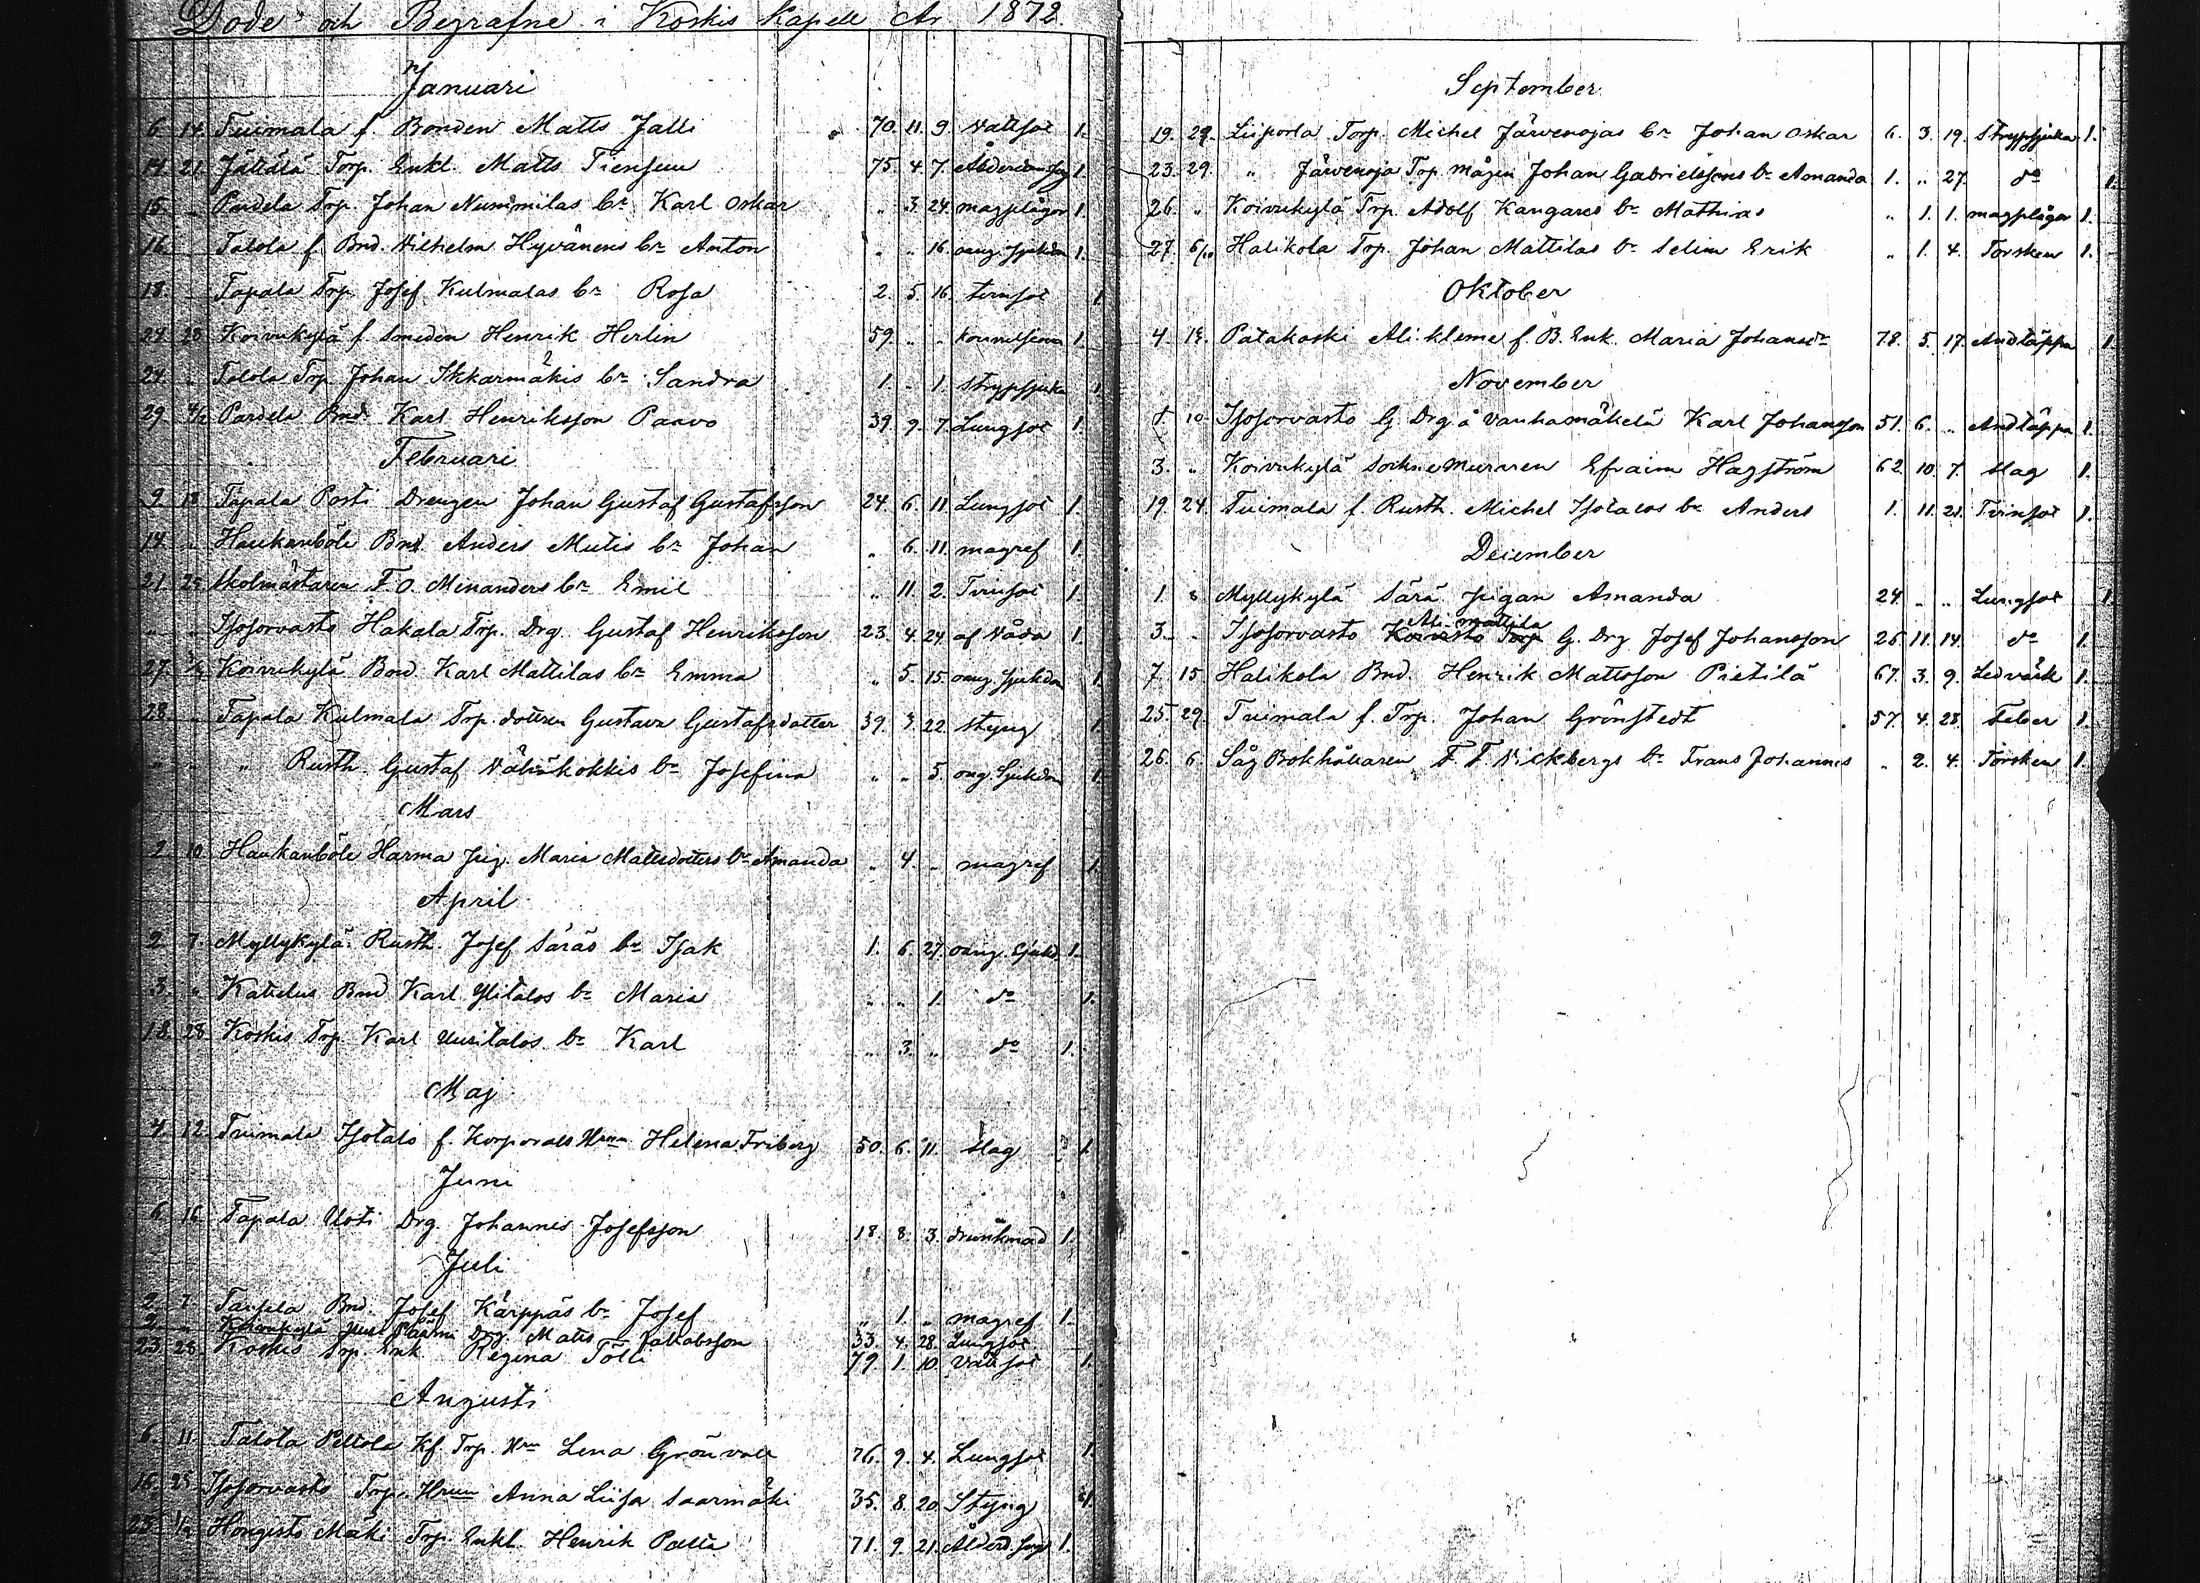 Döde och Begrafne i Koskis Kapell År 1872.
Januari
6. 14. Tuimala f. Bonden Matts Jalli 70. 11. 9. Vattsot 1.
14. 21. Jättälä Torp. Enkl. Matts Tiensuu 75. 4. 7. Ålderdomssvag 1.
15. „ Pardela Trp. Johan Nummilas br Karl Oskar „ 3. 24. magplågor 1.
16. Talola f. Bnd. Vilhelm Hyvänens br Anton „ „ 16. oang. sjukdm 1.
18. Tapala Trp. Josef Kulmalas br Rosa 2. 5. 16. tvinsot 1.
24. 28. Koivukylä f. Smeden Henrik Herlin 59. „ „ 1.
24. „ Talola Trp. Johan Ikkarmäkis br Sandra 1. „ 1. strypsjuka 1.
29. 4/2 Pardela Bnd. Karl Henriksson Paavo 39. 9. 7. Lungsot 1.
Februari
9. 18. Tapala Posti Drengen Johan Gustaf Gustafsson 24. 6. 11. Lungsot 1.
14. „ Haukanböle Bnd. Anders Mutis br Johan „ 6. 11. magref 1.
21. 25. Skolmästaren F. O. Menanders br Emil „ 11. 2. Tvinsot 1.
„ „ Isosorvasto Hakala Trp. Drg. Gustaf Henriksson 23. 4. 24. af Våda 1.
27. Koivukylä Bnd. Karl Mattilas br Emma „ 5. 15. oang. sjukdm 1.
28. „ Tapala Kulmala Trp. dottren Gustava Gustafsdotter 39. 7. 22. styng 1.
„ „ „ Rusth. Gustaf Vähäkokkis br Josefina „ „ 5. oang. Sjukdm 1.
Mars
2. 10. Haukanböle Harma pig. Maria Mattsdotters br Amanda „ 4. „ magref 1.
April
2. 7. Myllykylä Rusth. Josef Säräs br Isak 1. 6. 27. oang. Sjukd. 1.
3. „ Katulus Bnd Karl Ylitalos br Maria „ „ 1. do 1.
18. 28. Koskis Trp. Karl Uusitalos br Karl „ 3. „ do 1.
Maj
4. 12. Tuimala Isotalo f. Korporals Helena Friberg 50. 6. 11. slag 1.
Juni
6. 16. Tapala Uoti Drg. Johannes Josefsson 18. 8. 3. drunknad 1.
Juli
2. 7. Taipela Bnd. Josef Kärppäs br Josef „ 1. „ magref 1.
2. „ Koivukylä Drg. Matts Jakobsson 33. 4. 28. Lungsot
23. 28. Koskis Trp. Enk. Regina Tölli 79. 1. 10. Vattsot 1.
Augusti
6. 11. Talola Peltola Kf. Trp. Lena Grönvall 76. 9. 4. Lungsot 1.
16. 25. Isosorvasto Trp. Hrun Anna Liisa Saarmäki 35. 8. 20. Styng 1.
25. 1/9 Hongisto Mäki Trp. Enkl. Henrik Palla 71. 9. 21. Ålderd. svagh 1.
September
19. 29. Liipola Torp. Michel Järvenojas br Johan Oskar 6. 3. 19. Strypsjuka 1.
23. 29. „ Järvenoja Trp. mågen Johan Gabrielssons br Amanda 1. „ 27. do 1.
26. „ Koivukylä Trp. Adolf Kangares br Mathias „ 1. 1. magplågor 1.
27. 6/10 Halikola Trp. Johan Mattilas br Selim Erik „ 1. 4. Torsken 1.
Oktober
4. 13. Patakoski Alikleme f. B. Enk. Maria Johansdr 78. 5. 17. Andtäppa 1.
November
1. 10. Isosorvasto G. Drg å Vanhamäkelä Karl Johansson 51. 6. „ Andtäppa 1.
3. „ Koivukylä Sockne muraren Efraim Hagström 62. 10. 7. slag 1.
19. 24. Tuimala f. Rusth. Michel Isotalos br Anders 1. 11. 21. Tvinsot 1.
December
1. 8 Myllykylä Särä pigan Amanda 24. „ „ Lungsot 1.
3. „ Isosorvasto Koivisto Torp Ali-mattila G. Drg Josef Johansson 25. 11. 14. do 1.
7. 15. Halikola Bnd. Henrik Mattsson Pietilä 67. 3. 9. Ledvärk 1.
25. 29. Tuimala f. Trp. Johan Grönstedt 57. 4. 28. Feber 1.
26. 6. Såg Bokhållaren F. F. Vickbergs br Frans Johannes „ 2. 4. Torsken 1.